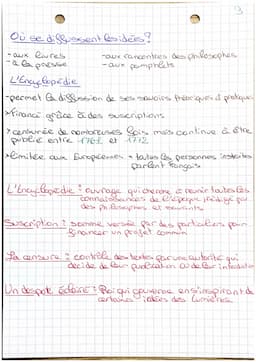 3
Où se diffusent les idées?
-aux livres -aux rencontres des philosophes
-à la presse -aux pamphlets
L'Encyclopédie
-permet la diffusion de ses savoirs théoriques et pratiques
>financé grâce à des suscriptions
>censurée de nombreuses fois mais continue à être
publié entre 1751 et 1772
>limitée aux Européennes → toutes les personnes instruites
parlent français
L'Encyclopédie : ouvrage qui cherche à réunir toutes les
connaissances de l'époque rédigé par
des philosophes et savants
Suscription : somme versée par des particuliers pour
financer un projet commun
La censure : contrôle des textes par une autorité qui
décide de leur publication ou de leur interdiction
Un despote éclairé : Roi qui gouverne en s'inspirant de
certaines idées des Lumières.